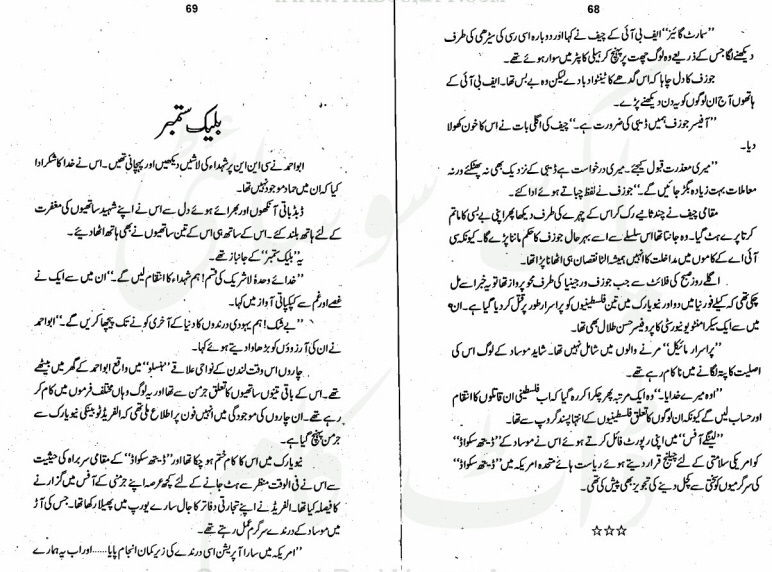 68
”سمارٹ گائیز“ ایف بی آئی کے چیف نے کہا اور دوبارہ اسی رسی کی سیڑھی کی طرف
دیکھنے لگا جس کے ذریعے وہ لوگ چھت پر پہنچ کر ہیلی کاپٹر میں سوار ہوئے تھے۔
جوزف کا دل چاہا کہ اس گدھے کا ٹینٹوا دبا دے لیکن وہ بے بس تھا۔ ایف بی آئی کے
ہاتھوں آج ان لوگوں کو یہ دن دیکھنے پڑے۔
”آفیسر جوزف ہمیں ڈیبی کی ضرورت ہے۔“ چیف کی اگلی بات نے اس کا خون کھولا
دیا۔
”میری معذرت قبول کیجئے۔ میری درخواست ہے ڈیبی کے نزدیک بھی نہ پھٹکئے ورنہ
معاملات بہت زیادہ بگڑ جائیں گے۔“ جوزف نے لفظ چباتے ہوئے ادا کئے۔
مقامی چیف نے چند ثانیے رک کر اس کے چہرے کی طرف دیکھا پھر اپنی بے بسی کا ماتم
کرتا پرے ہٹ گیا۔ وہ جانتا تھا اس سلسلے سے اسے بہرحال جوزف کا حکم ماننا پڑے گا۔ کیونکہ سی
آئی اے کے کاموں میں مداخلت کا انہیں ہمیشہ الٹا نقصان ہی اٹھانا پڑا تھا۔
اگلے روز صبح کی فلائٹ سے جب جوزف ورجینیا کی طرف محو پرواز تھا تو یہ خبر اسے مل
چکی تھی کہ کیلے فورنیا میں دو اور نیویارک میں تین فلسطینیوں کو پراسرار طور پر قتل کر دیا گیا ہے۔ ان
میں سے ایک سیکرامنٹو یونیورسٹی کا پروفیسر حسن طلال بھی تھا۔
”پراسرار مائیکل“ مرنے والوں میں شامل نہیں تھا۔ شاید موساد کے لوگ اس کی
اصلیت کا پتہ لگانے میں ناکام رہے تھے۔
”اوہ میرے خدایا۔“ وہ ایک مرتبہ پھر چکرا کر رہ گیا کہ اب فلسطینی ان قاتلوں کا انتقام
اور حساب لیں گے کیونکہ ان لوگوں کا تعلق فلسطینیوں کے انتہا پسند گروپ سے تھا۔
”لینگلے آفس“ میں اپنی رپورٹ فائل کرتے ہوئے اس نے موساد کے ”ڈیتھ سکواڈ“
کو امریکی سلامتی کے لئے چیلنج قرار دیتے ہوئے ریاست ہائے متحدہ امریکہ میں ”ڈیتھ سکواڈ“
کی سرگرمیوں کو سختی سے کچل دینے کی تجویز بھی پیش کی تھی۔
☆☆☆
69
بلیک ستمبر
ابواحمد نے سی این این پر شہداء کی لاشیں دیکھیں اور پہچانی تھیں۔ اس نے خدا کا شکر ادا
کیا کہ ان میں حماد موجود نہیں تھا۔
ڈبڈباتی آنکھوں اور بھرائے ہوئے دل سے اس نے اپنے شہید ساتھیوں کی مغفرت
کے لئے ہاتھ بلند کئے۔ اس کے ساتھ ہی اس کے تین ساتھیوں نے بھی ہاتھ اٹھا دیئے۔
یہ ”بلیک ستمبر“ کے جانباز تھے۔
”خدائے وحدہٗ لاشریک کی قسم! ہم شہداء کا انتقام لیں گے۔“ ان میں سے ایک نے
غصے اور غم سے کپکپاتی آواز میں کہا۔
”بے شک! ہم یہودی درندوں کا دنیا کے آخری کونے تک پیچھا کریں گے۔“ ابواحمد
نے ان کی آرزوؤں کو بڑھاوا دیتے ہوئے کہا۔
چاروں اس وقت لندن کے نواحی علاقے ”ہنسلو“ میں واقع ابواحمد کے گھر میں بیٹھے
تھے۔ اس کے باقی تینوں ساتھیوں کا تعلق جرمن سے تھا اور یہ لوگ وہاں مختلف فرموں میں کام کر
رہے تھے۔ ان چاروں کی موجودگی میں انہیں فون پر اطلاع ملی تھی کہ الفریڈ ٹوبیٹکی نیویارک سے
جرمن پہنچ گیا ہے۔
نیویارک میں اس کا کام ختم ہو چکا تھا اور ”ڈیتھ سکواڈ“ کے مقامی سربراہ کی حیثیت
سے اس نے فی الوقت منظر سے ہٹ جانے کے لئے کچھ عرصہ اپنے جرمنی کے آفس میں گزارنے
کا فیصلہ کیا تھا۔ الفریڈ نے اپنے تجارتی دفاتر کا جال سارے یورپ میں پھیلا رکھا تھا۔ جس کی آڑ
میں موساد کے درندے سرگرم عمل رہتے تھے۔
”امریکہ میں سارا آپریشن اسی درندے کی زیر کمان انجام پایا......اور اب یہ ہمارے